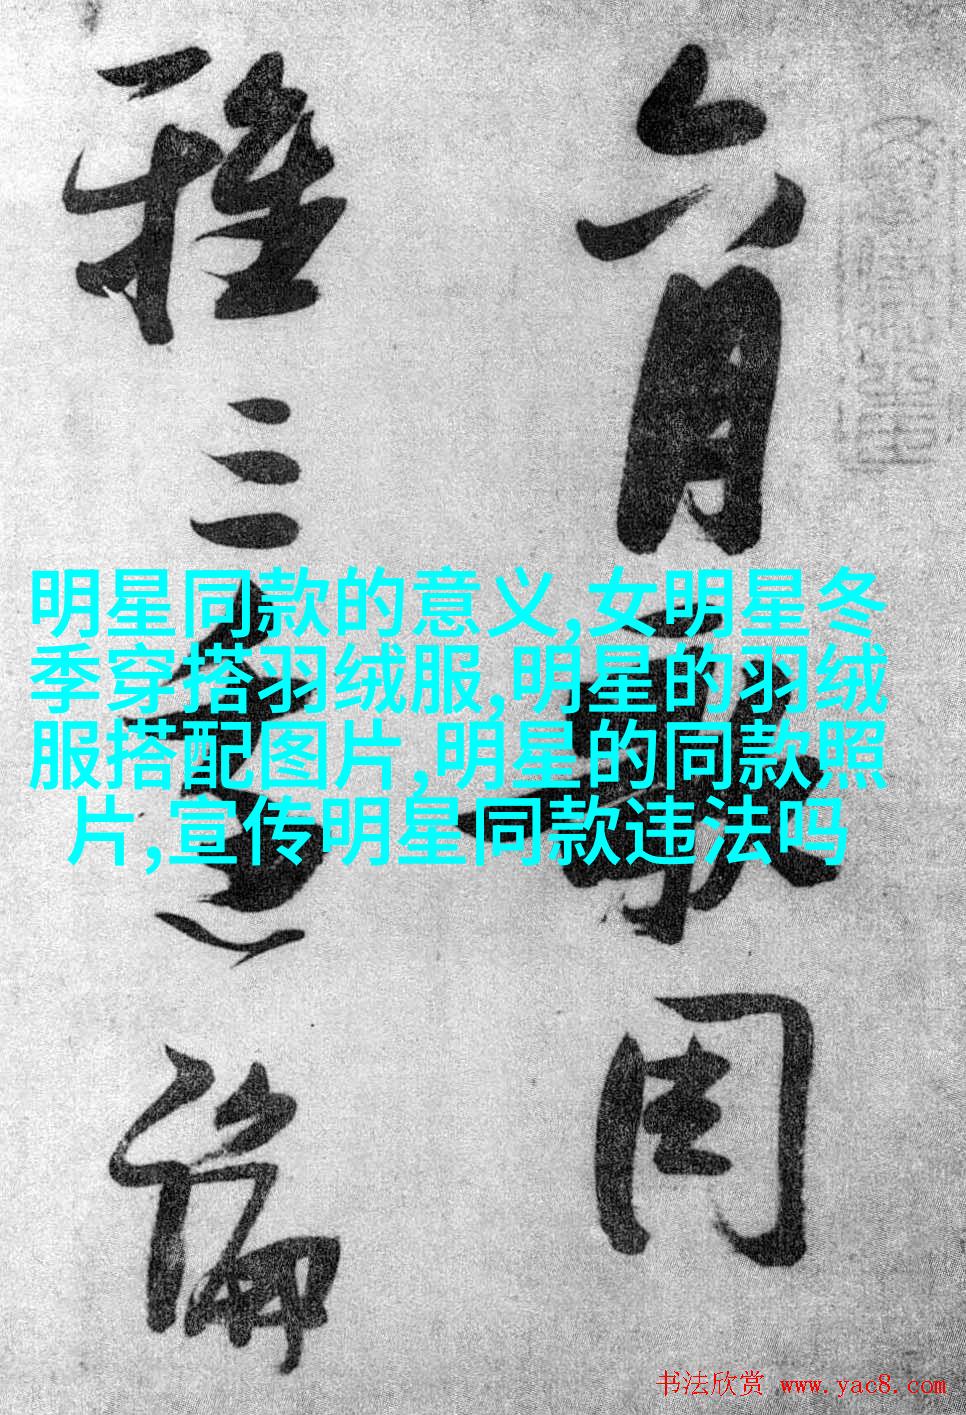 六月
周
雅三
論
明星同款的意义,女明星冬
季穿搭羽绒服,明星的羽绒
服搭配图片,明星的同款照
片,宣传明星同款违法吗
书法欣赏 www.yac8.com